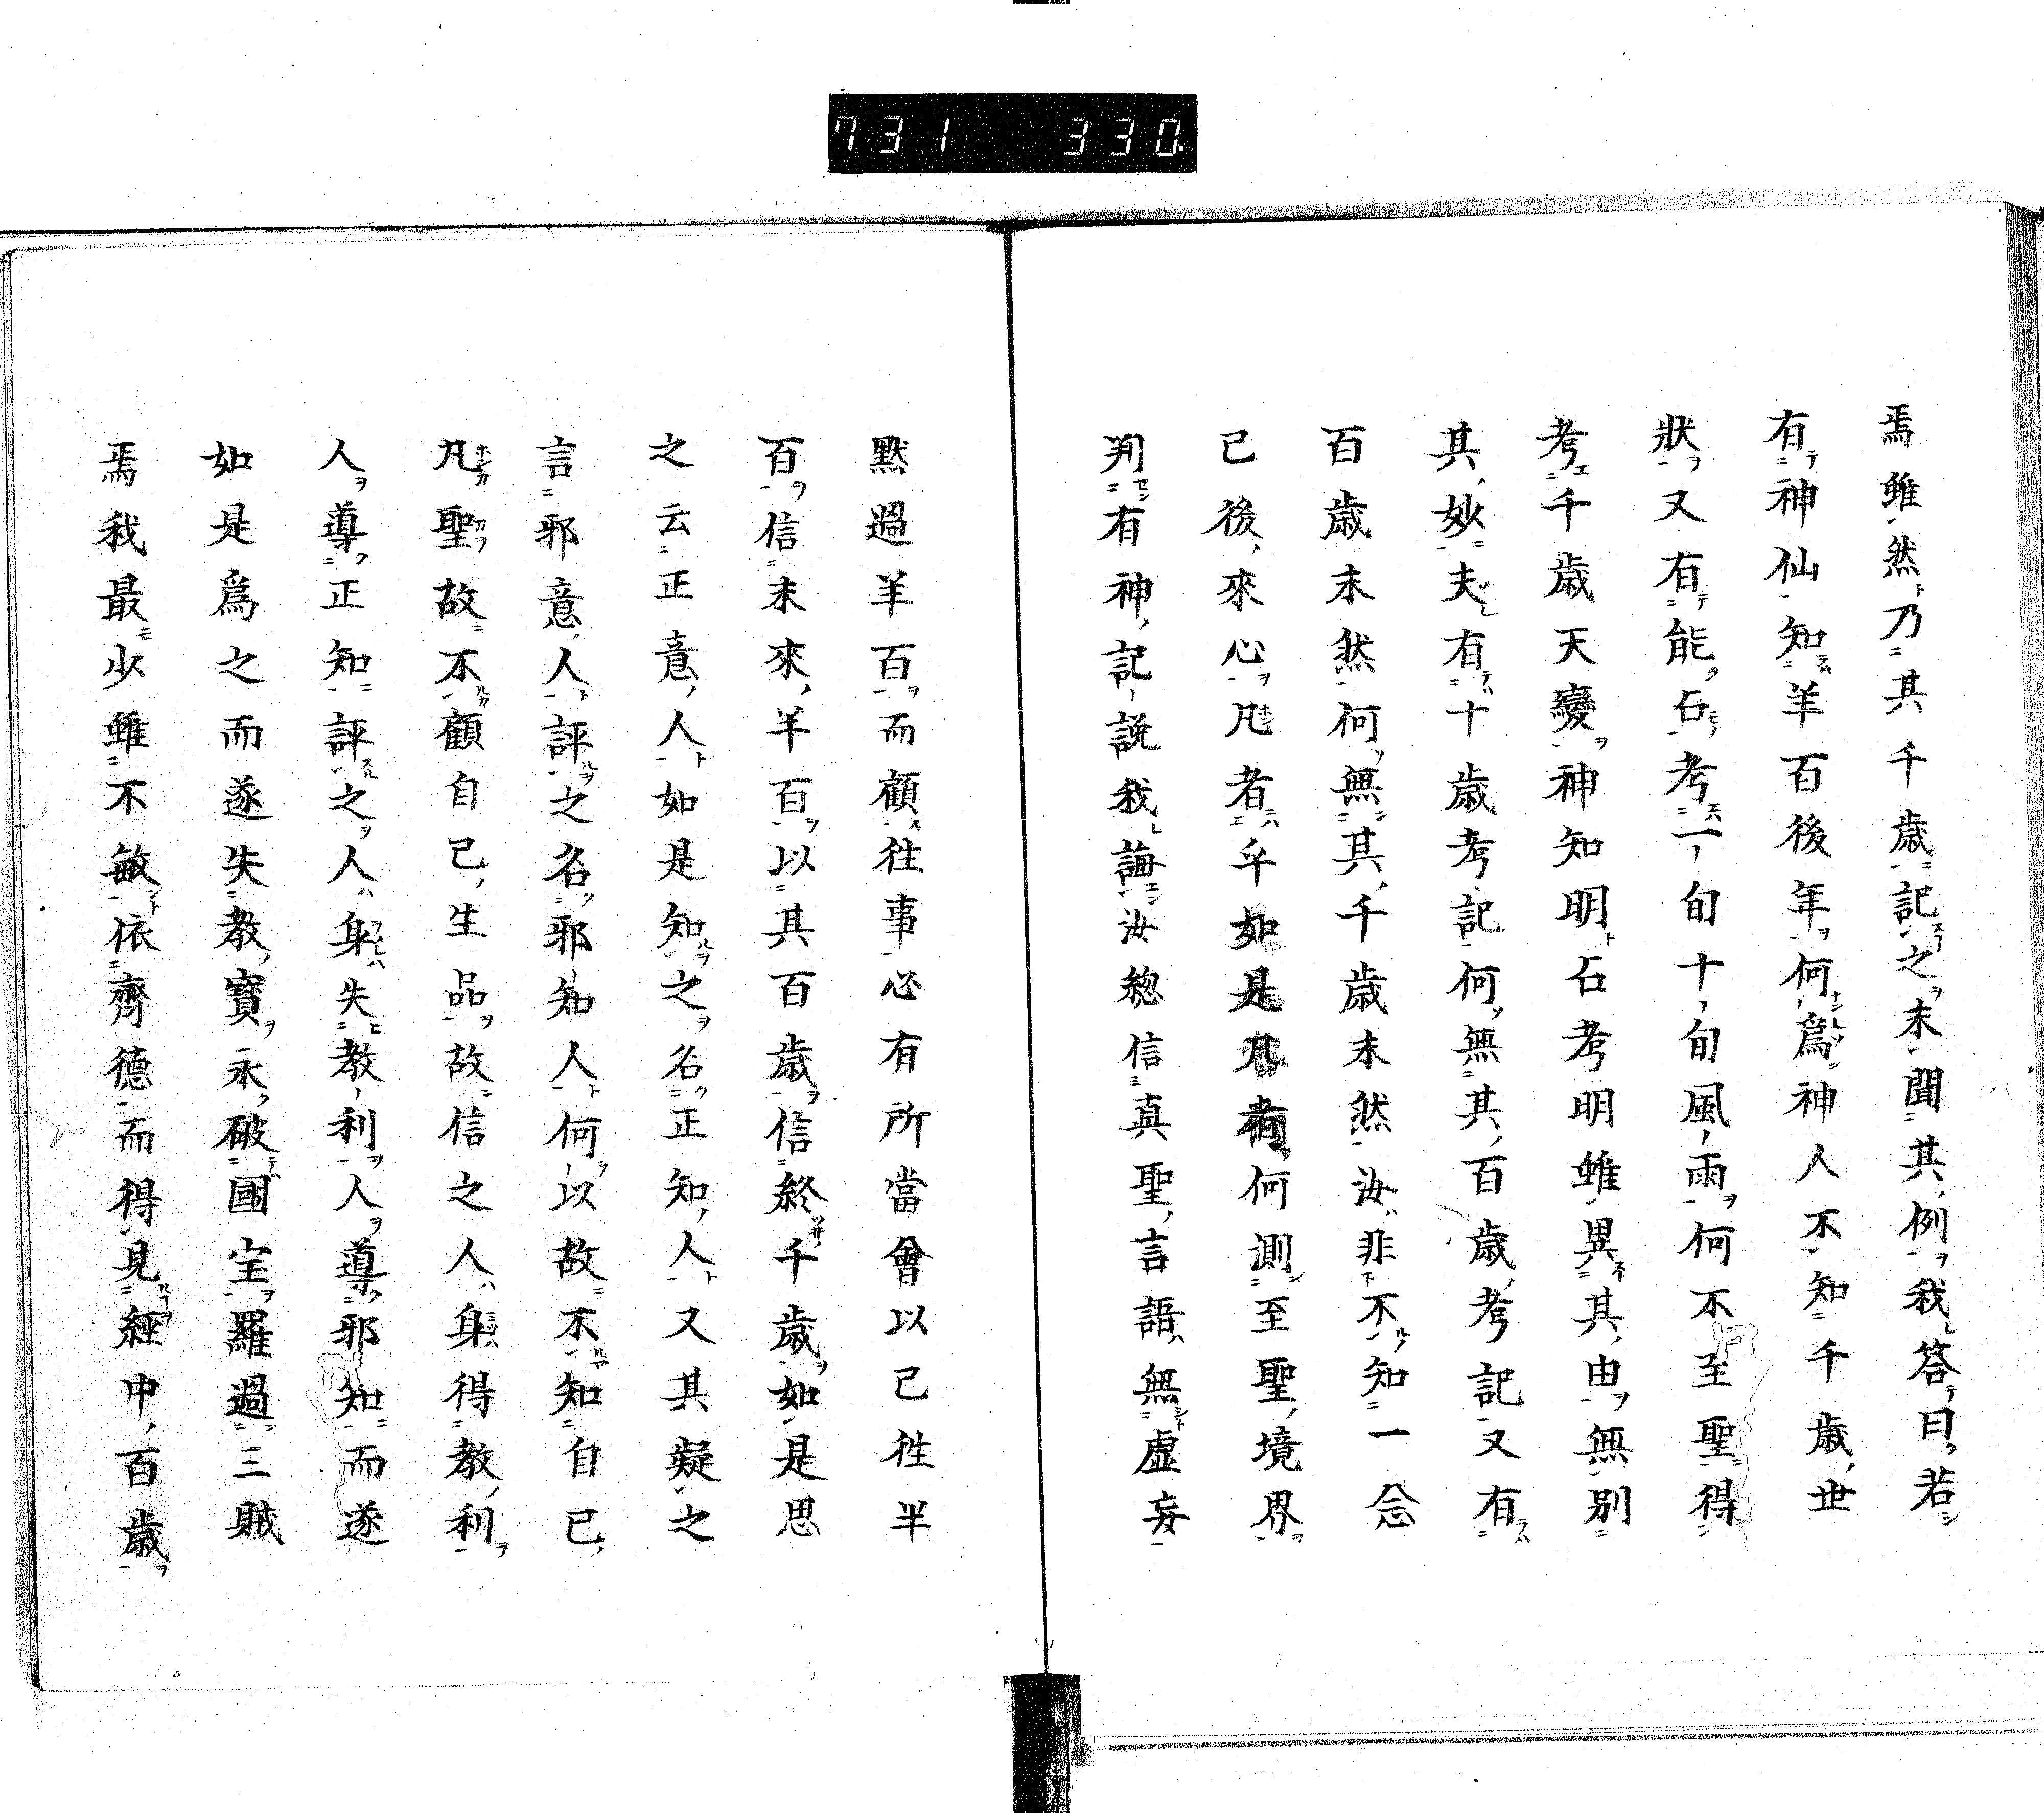 731 330
焉雖然乃其千歳記之未聞其例我答曰若
有神仙知半百後年何爲神人不知千歳世
狀又有能占考一旬十旬風雨何不至聖得
考千歳天變神知明占考明雖異其由無別
其妙夫有十歳考記何無其百歳考記又有
百歳未然何無其千歳未然汝非不知一念
已後來心凡者乎如是凡者何測至聖境界
判有神記説我誨汝総信真聖言語無虚妄
黙過半百而顧往事必有所當會以已往半
百信未來半百以其百歳信終千歳如是思
之云正意人如是知之名正知人又其疑之
言邪意人評之名邪知人何以故不知自己
凡聖故不顧自己生品故信之人身得教利
人導正知評之人身失教利人導邪知而遂
如是爲之而遂失教寳永破國宝羅過三賊
焉我最少雖不敏依齊徳而得見経中百歳